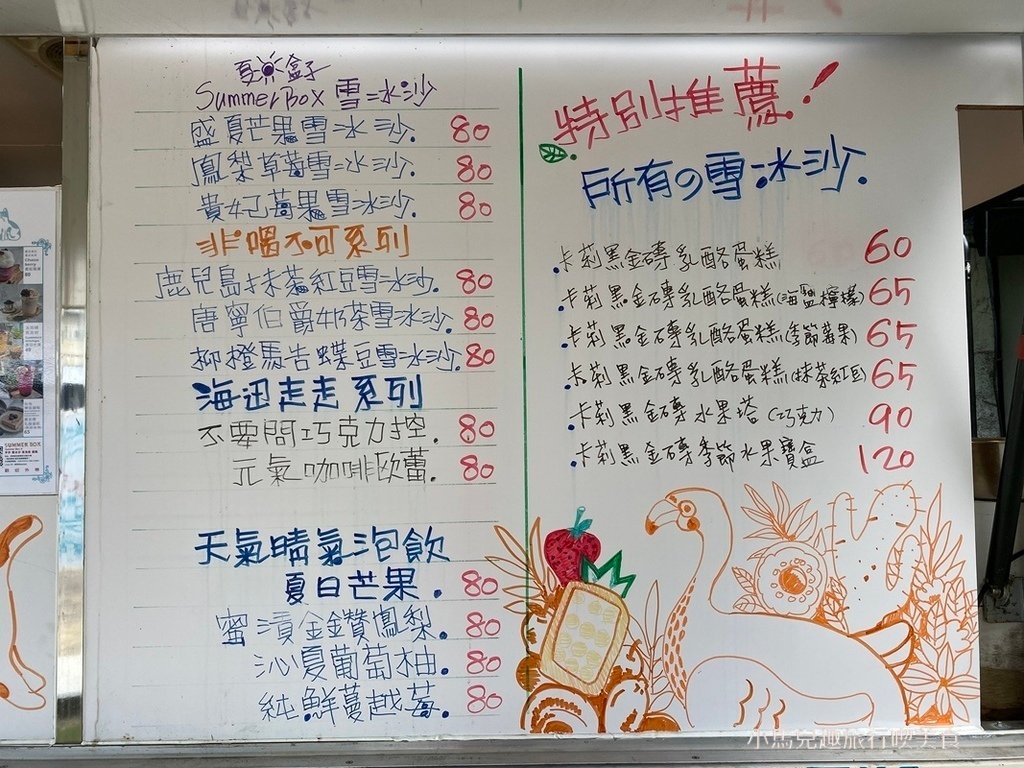 夏盒子
Summer Box 雪冰沙
盛夏芒果雪冰沙. 80
鳳梨草莓雪冰沙. 80
貴妃莓果雪冰沙. 80
非嚐不可系列
鹿兒島抹茶紅豆雪冰沙. 80
唐寧伯爵奶茶雪冰沙. 80
柳橙馬告蝶豆雪冰沙. 80
海迅走走系列
不要問巧克力控. 80
元氣咖啡歐蕾. 80
天氣晴氣泡飲
夏日芒果. 80
蜜漬金鑽鳳梨. 80
沁夏葡萄柚. 80
純鮮蔓越莓. 80
特別推薦!
所有の雪冰沙.
.卡莉黑金磚乳酪蛋糕 60
.卡莉黑金磚乳酪蛋糕(海鹽檸檬) 65
.卡莉黑金磚乳酪蛋糕(季節莓果) 65
.卡莉黑金磚乳酪蛋糕(抹茶紅豆) 65
.卡莉黑金磚水果塔(巧克力) 90
.卡莉黑金磚季節水果寶盒 120
SUMMER BOX
小馬克趣旅行瞇美食